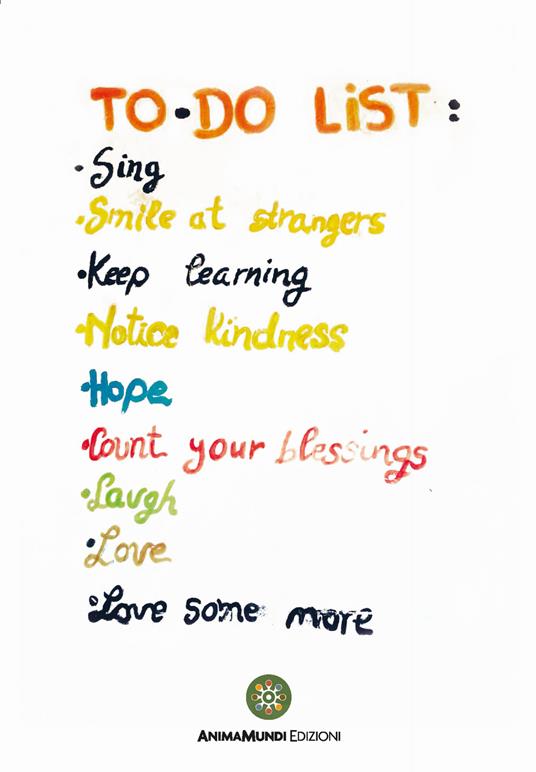 TO·DO LiST:
·Sing
·Smile at strangers
·Keep learning
·Notice kindness
·Hope
·Count your blessings
·Laugh
·Love
·Love some more
ANIMAMUNDI EDIZIONI